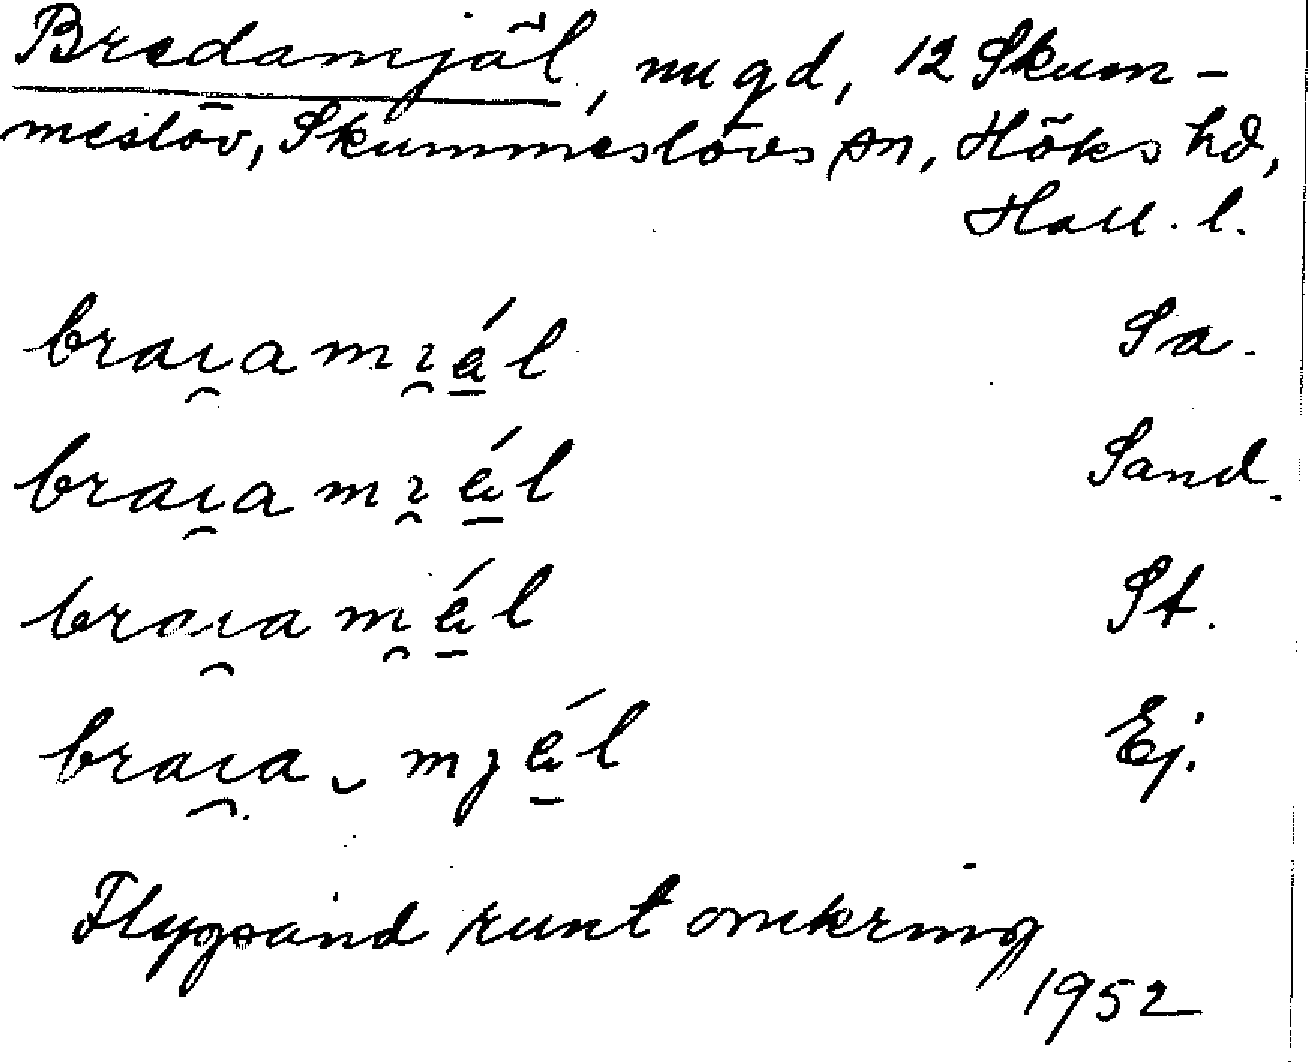 Bredamjäl, nu gd, 12 Skum-
meslöv, Skummeslövs sn, Höks hd,
Hall. l.
braɪ̯amɪ̯á̠l Sa.
braɪ̯amɪ̯á̠l Sand.
braɪ̯amɪ̯á̠l St.
braɪ̯a ‿ mjá̠l Ej.
Flygsand runt omkring
1952